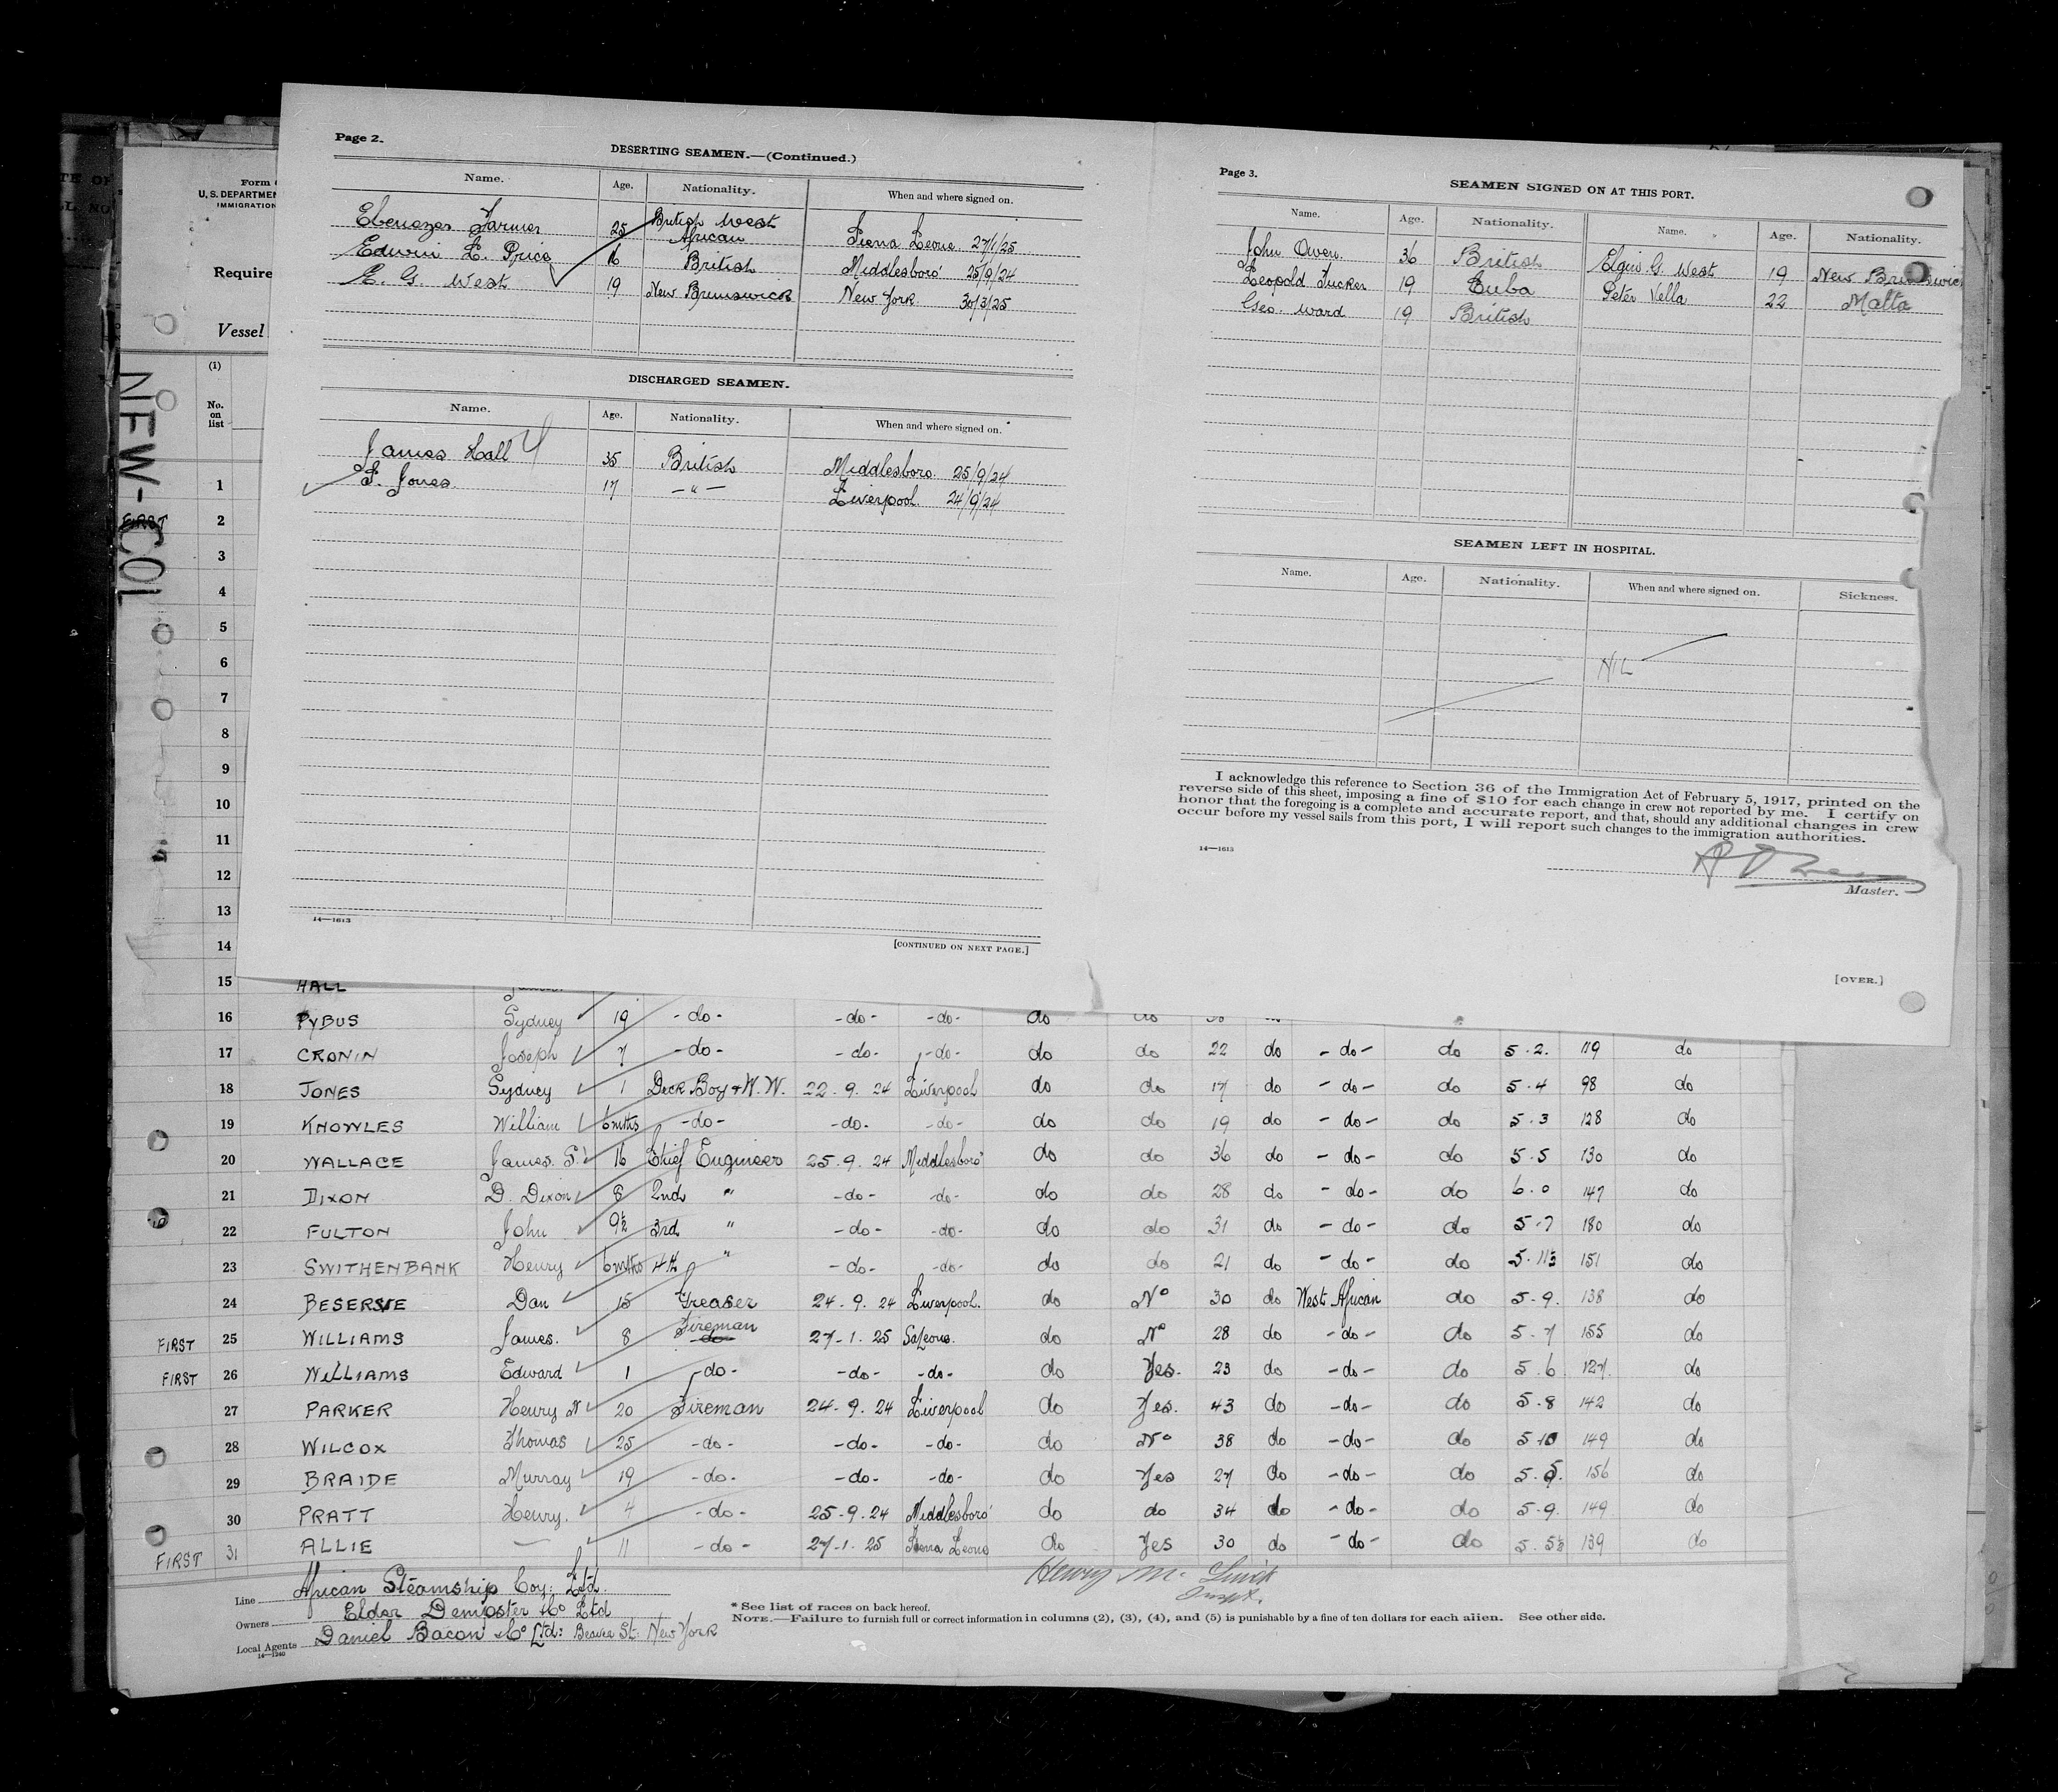 Page 2.
DESERTING SEAMEN.—(Continued.)
Name. Age. Nationality. When and where signed on.
Ebenezer Farmer 25 British West African Sierra Leone 27/1/25
Edwin L. Price 16 British Middlesboro' 25/9/24
E. G. West 19 New Brunswick New York 30/3/25
DISCHARGED SEAMEN.
Name. Age. Nationality. When and where signed on.
James Hall 35 British Middlesboro. 25/9/24
S. Jones. 17 —"— Liverpool. 24/9/24
14—1613
[CONTINUED ON NEXT PAGE.]
Page 3.
SEAMEN SIGNED ON AT THIS PORT.
Name. Age. Nationality. Name. Age. Nationality.
John Owen. 36 British Elgin G. West 19 New Brunswick
Leopold Tucker 19 Cuba Peter Vella 22 Malta
Geo. Ward 19 British
SEAMEN LEFT IN HOSPITAL.
Name. Age. Nationality. When and where signed on. Sickness.
NIL
I acknowledge this reference to Section 36 of the Immigration Act of February 5, 1917, printed on the
reverse side of this sheet, imposing a fine of $10 for each change in crew not reported by me. I certify on
honor that the foregoing is a complete and accurate report, and that, should any additional changes in crew
occur before my vessel sails from this port, I will report such changes to the immigration authorities.
14—1613
Master.
[OVER.]
Form
U. S. DEPARTMEN
IMMIGRATION
Require
Vessel
(1)
No.
on
list
NEW-COL
FIRST
1
2
3
4
5
6
7
8
9
10
11
12
13
14
15 HALL
16 PYBUS Sydney 19 -do- -do- -do- do do
17 CRONIN Joseph 7 -do- -do- -do- do do 22 do -do- do 5.2. 119 do
18 JONES Sydney 1 Deck Boy & W.W. 22.9.24 Liverpool do do 17 do -do- do 5.4 98 do
19 KNOWLES William 6mths -do- -do- -do- do do 19 do -do- do 5.3 128 do
20 WALLACE James. S. 16 Chief Engineer 25.9.24 Middlesboro' do do 36 do -do- do 5.5 130 do
21 DIXON D. Dixon 8 2nd " -do- -do- do do 28 do -do- do 6.0 147 do
22 FULTON John 9½ 3rd " -do- -do- do do 31 do -do- do 5.7 180 do
23 SWITHENBANK Henry 6mths 4th " -do- -do- do do 21 do -do- do 5.11½ 151 do
24 BESERVE Dan 15 Greaser 24.9.24 Liverpool. do No 30 do West African do 5-9. 138 do
FIRST 25 WILLIAMS James. 8 Fireman 27-1.25 Saleone. do No 28 do -do- do 5.7 155 do
FIRST 26 WILLIAMS Edward 1 -do- -do- -do- do Yes. 23 do -do- do 5.6 127. do
27 PARKER Henry 20 Fireman 24.9.24 Liverpool do Yes. 43 do -do- do 5.8 142 do
28 WILCOX Thomas 25 -do- -do- -do- do No 38 do -do- do 5.10 149 do
29 BRAIDE Murray 19 -do- -do- -do- do Yes 27 do -do- do 5.9. 156 do
30 PRATT Henry. 4 -do- 25-9.24 Middlesboro' do do 34 do -do- do 5-9. 149 do
FIRST 31 ALLIE — 11 -do- 27-1.25 Sierra Leone do Yes 30 do -do- do 5.5½ 139 do
Line African Steamship Coy: Ltd.
Owners Elder Dempster & Co Ltd
Local Agents Daniel Bacon & Co Ltd: Beaver St: New York
14—1240
Henry M.
Inspt.
* See list of races on back hereof.
NOTE.—Failure to furnish full or correct information in columns (2), (3), (4), and (5) is punishable by a fine of ten dollars for each alien. See other side.